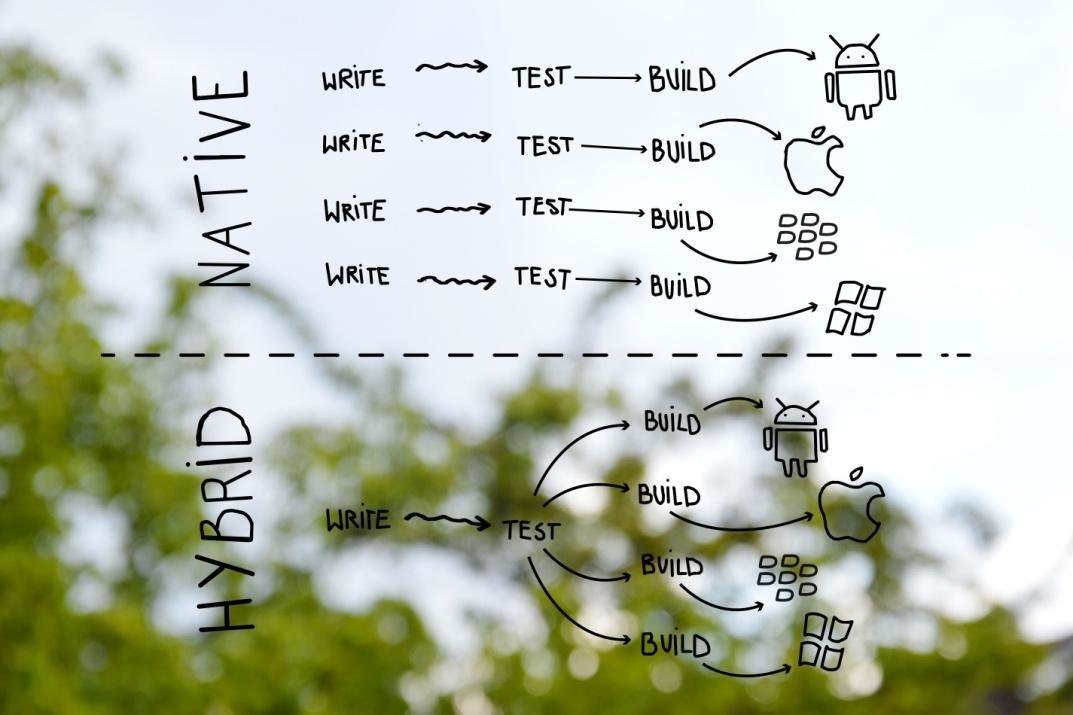 NATIVE
WRITE TEST BUILD
WRITE TEST BUILD
WRITE TEST BUILD
WRITE TEST BUILD
HYBRID
BUILD
BUILD
WRITE TEST
BUILD
BUILD